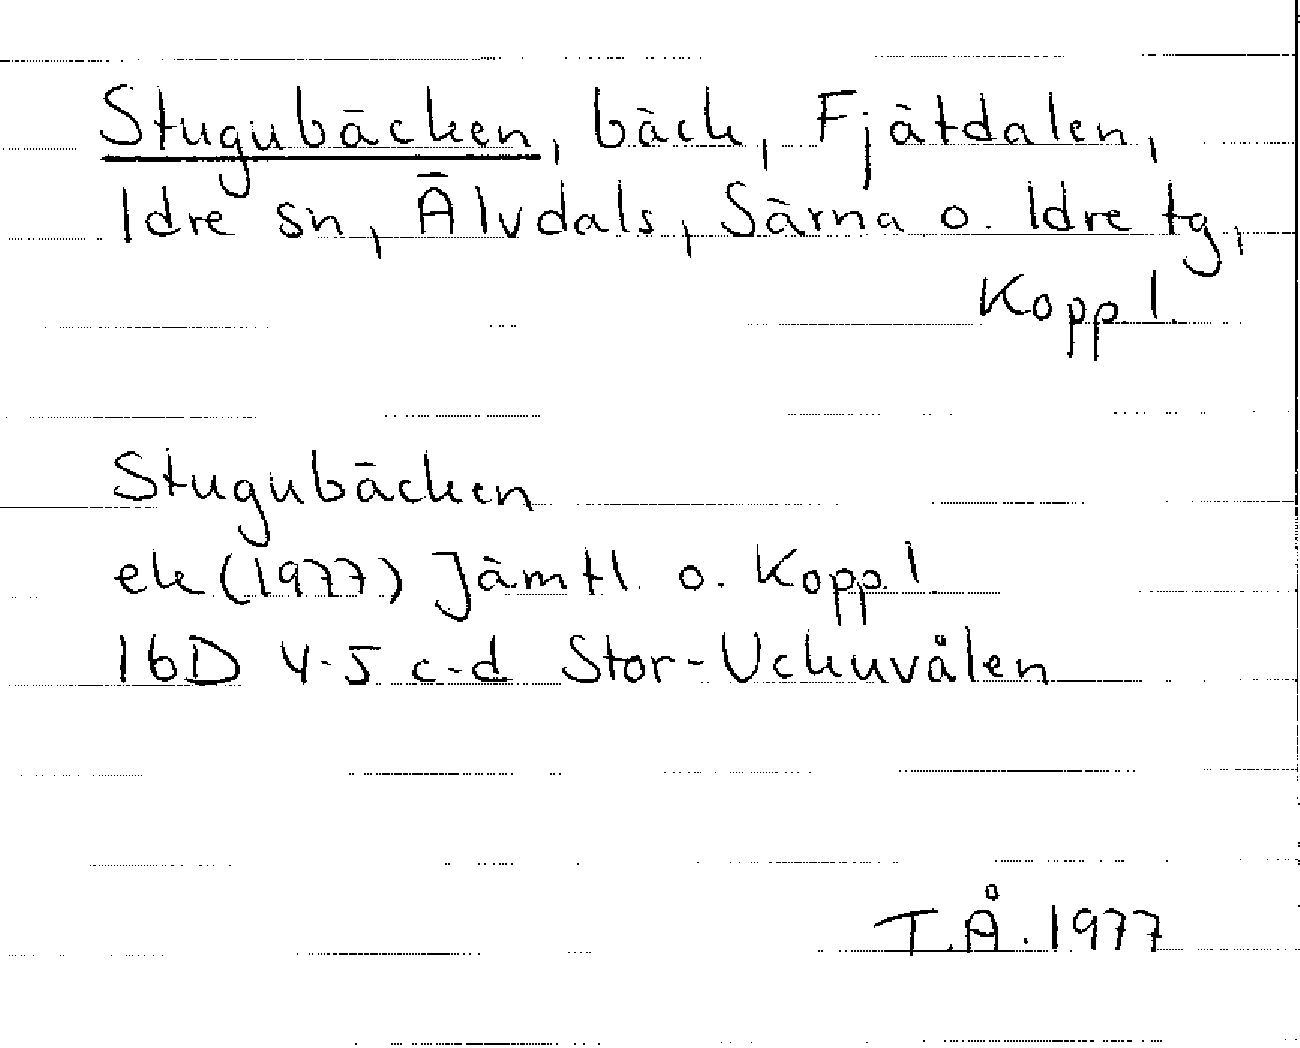 Stugubäcken, bäck, Fjätdalen,
Idre sn, Älvdals, Särna o. Idre tg,
Kopp.l.
Stugubäcken
ek (1977) Jämtl. o. Kopp.l.
16D 4-5 c-d Stor-Uckuvålen
T.Å. 1977